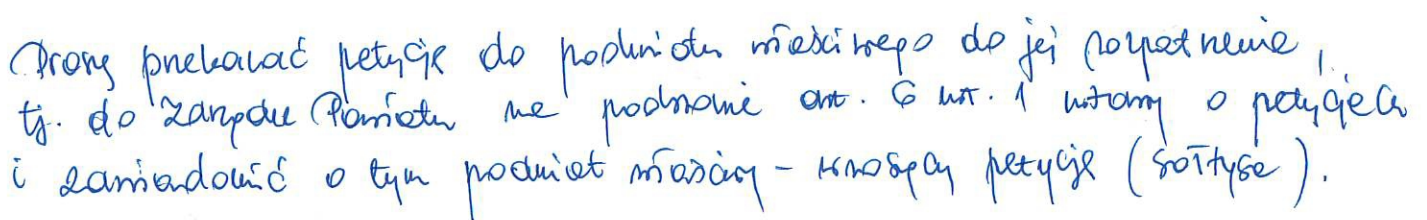 Proszę przekazać petycję do podmiotu właściwego do jej rozpatrzenia,
tj. do Zarządu Powiatu na podstawie art. 6 ust. 1 ustawy o petycjach
i zawiadomić o tym podmiot właściwy - wnoszący petycję (sołtysa).